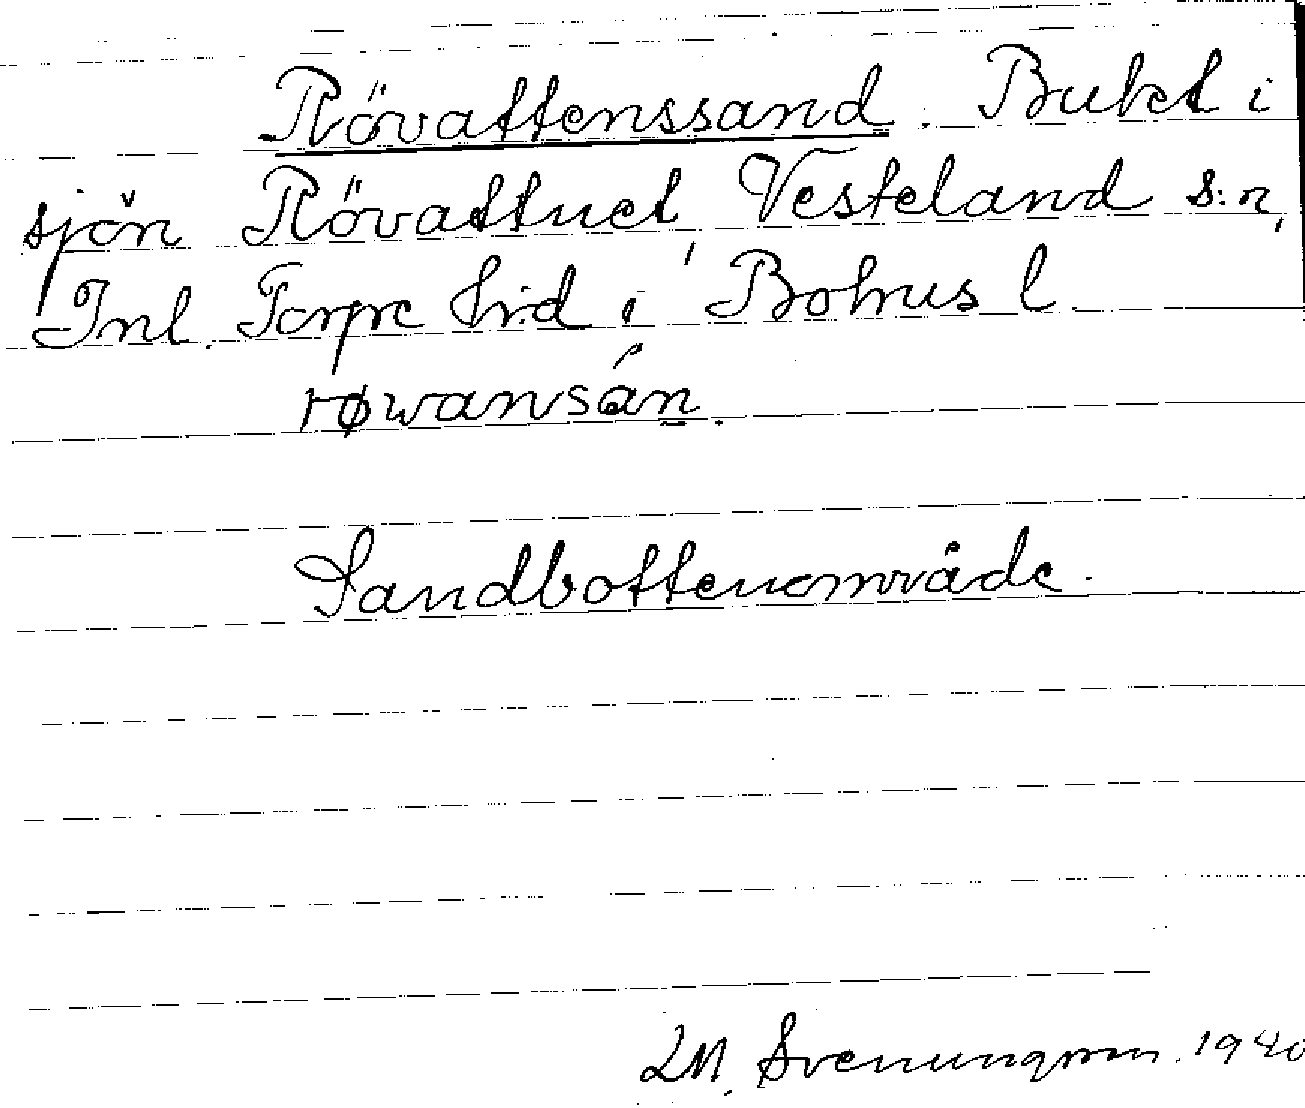 Rövattenssand. Buket i
sjön Rövattnet Vesteland s:n,
Inl. Torpe h:d i Bohus l
røwansán.
Sandbottenområde.
LM. Svenungsson. 1940